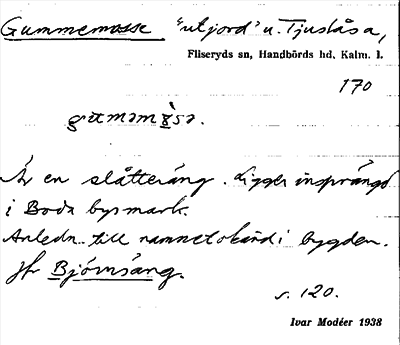 Gummemosse "utjord" u. Tjuståsa,
Fliseryds sn, Handbörds hd, Kalm. l.
170
Är en slåtteräng. Ligger insprängd
i Boda bysmark.
Anledn. till namnet okänd i bygden.
Jfr Björnsäng.
s. 120.
Ivar Modéer 1938